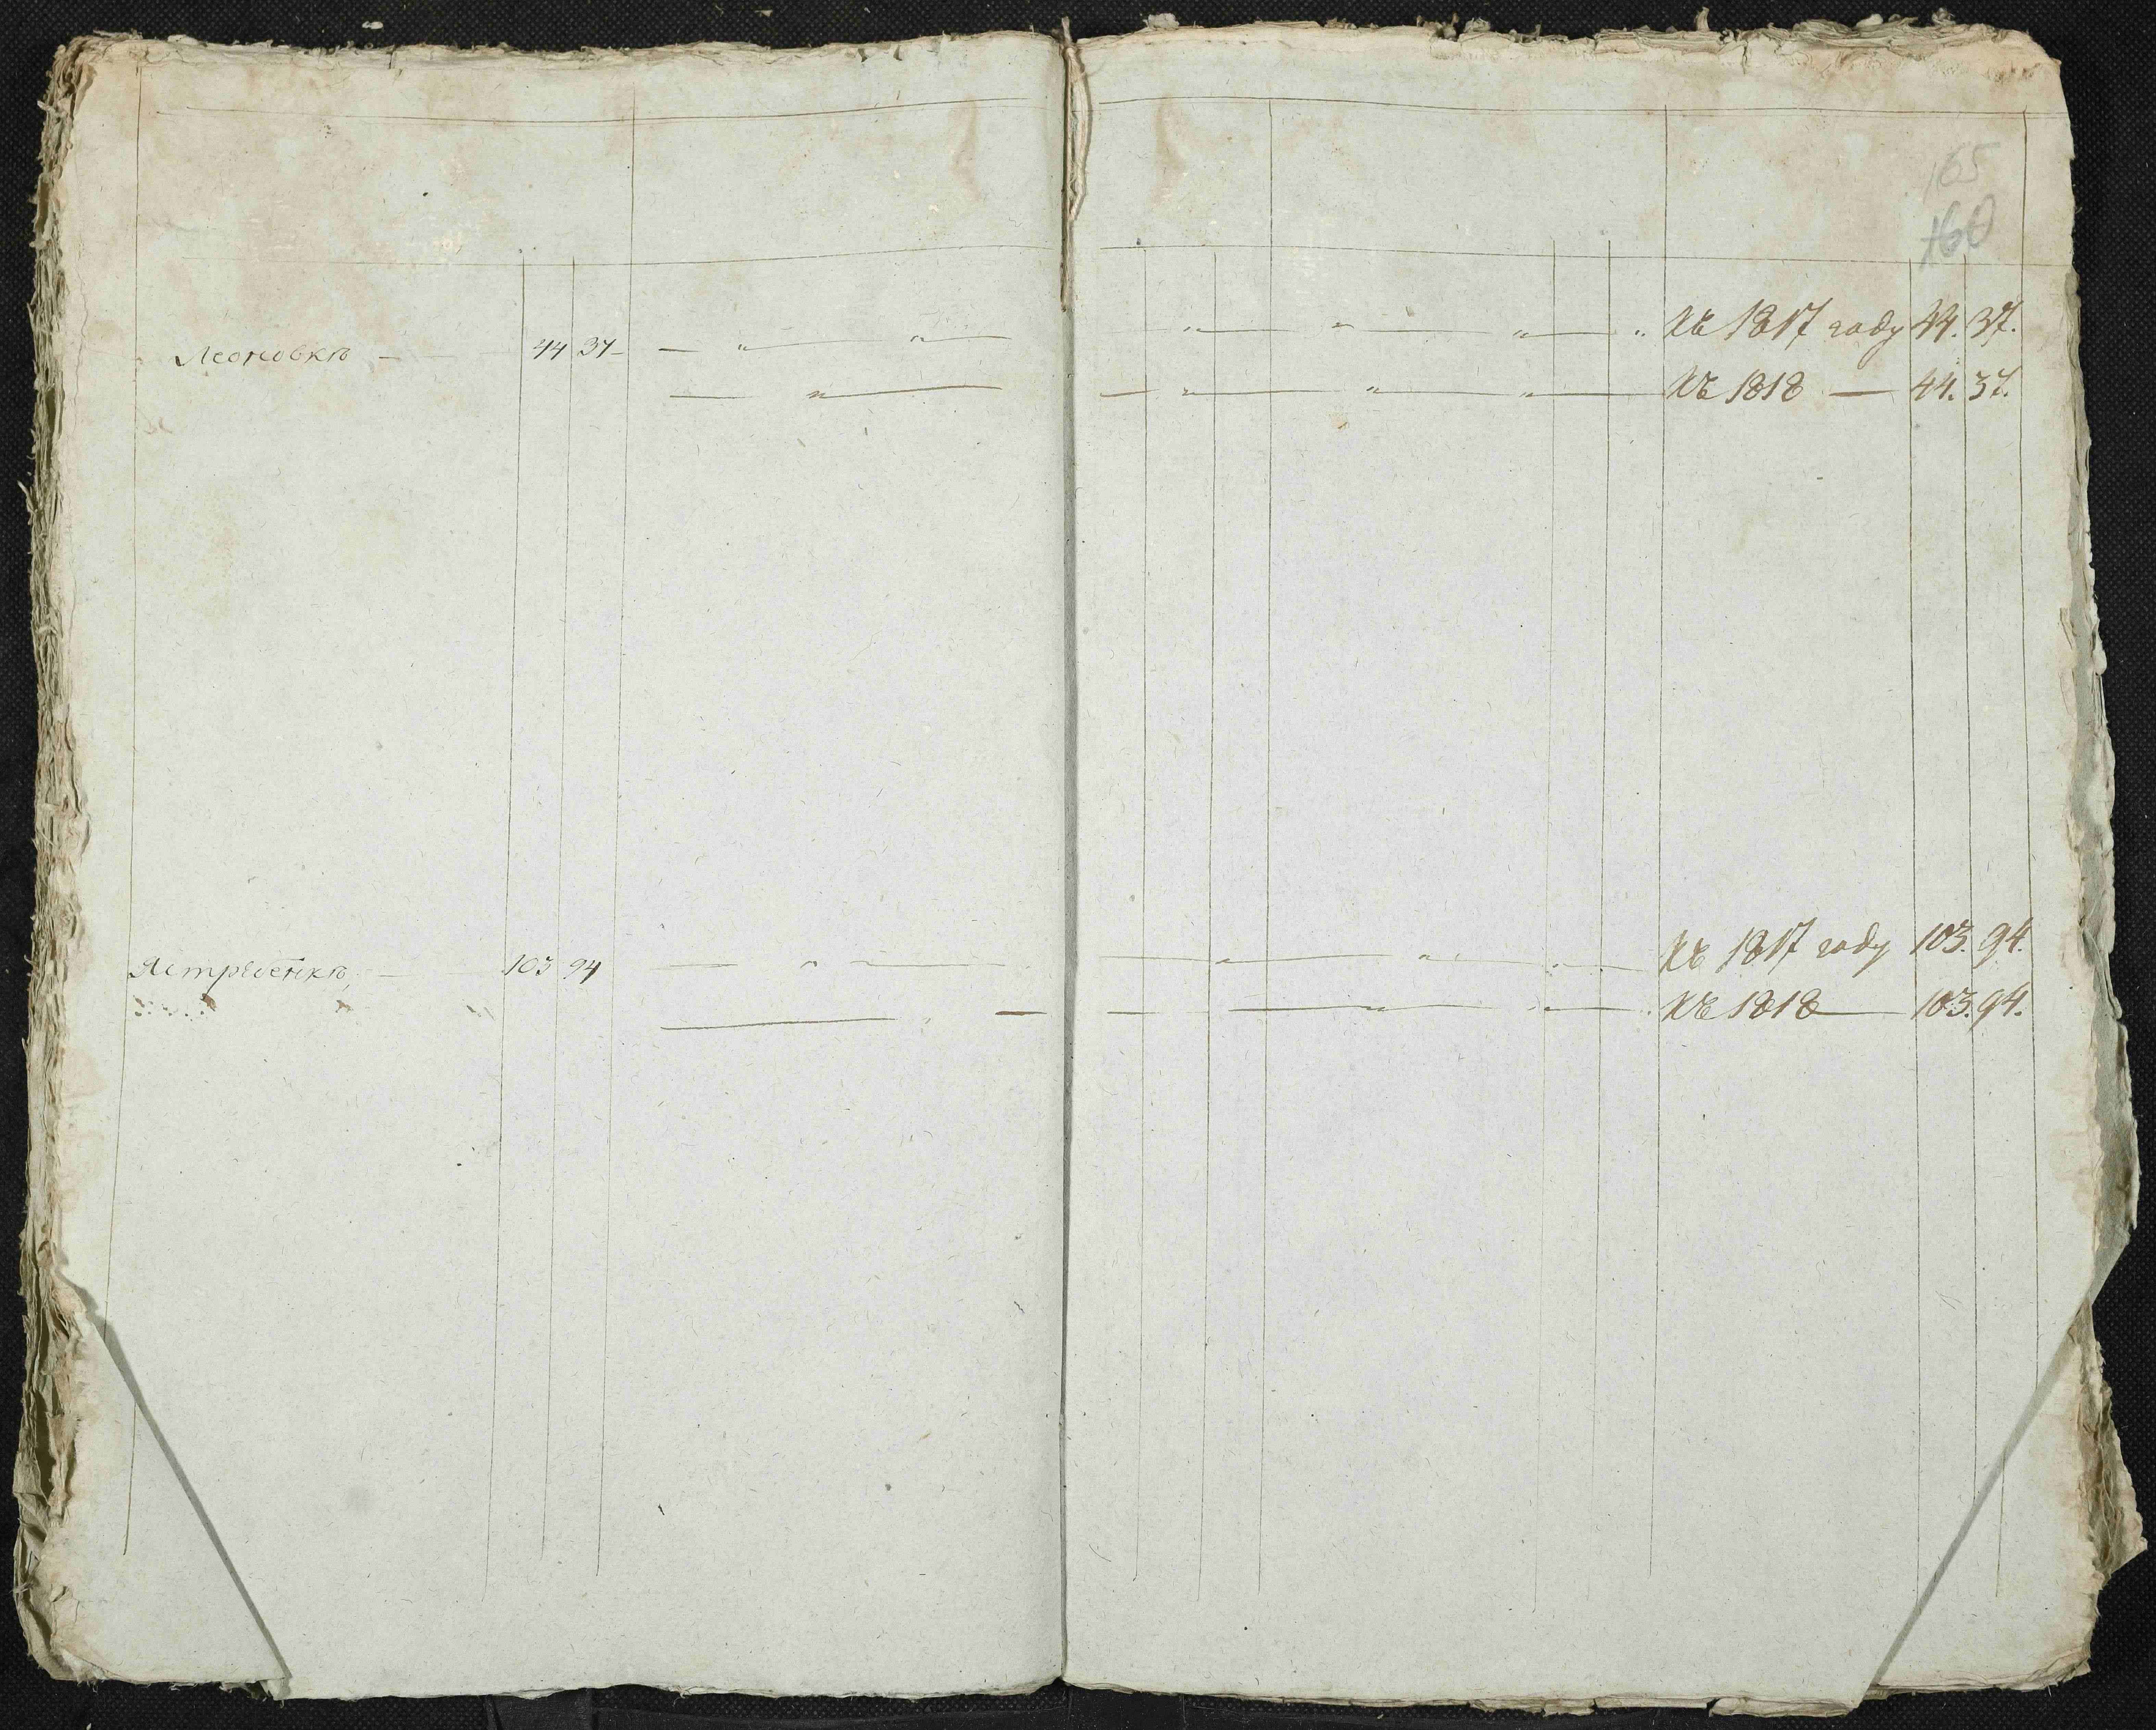 165
160
Леоновкѣ — 44 37 — — „ — „ — „ — „ — „ — „ Къ 1817 году 44. 37.
— „ — — „ — „ — „ — Къ 1818 — 44. 37.
Ястребенкѣ, — 103 94 — „ — — „ — „ — „ — Къ 1817 году 103. 94.
— — — — „ — „ — Къ 1818 — 103. 94.